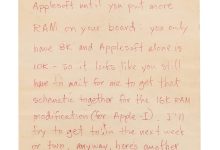 Applesoft until you put more
RAM on your board - you only
have 8K and Applesoft alone is
10K - so it looks like you still
have to wait for me to get that
schematic together for the 16K RAM
modification (for Apple-I). I'll
try to get to in the next week
or two. anyway, here's another